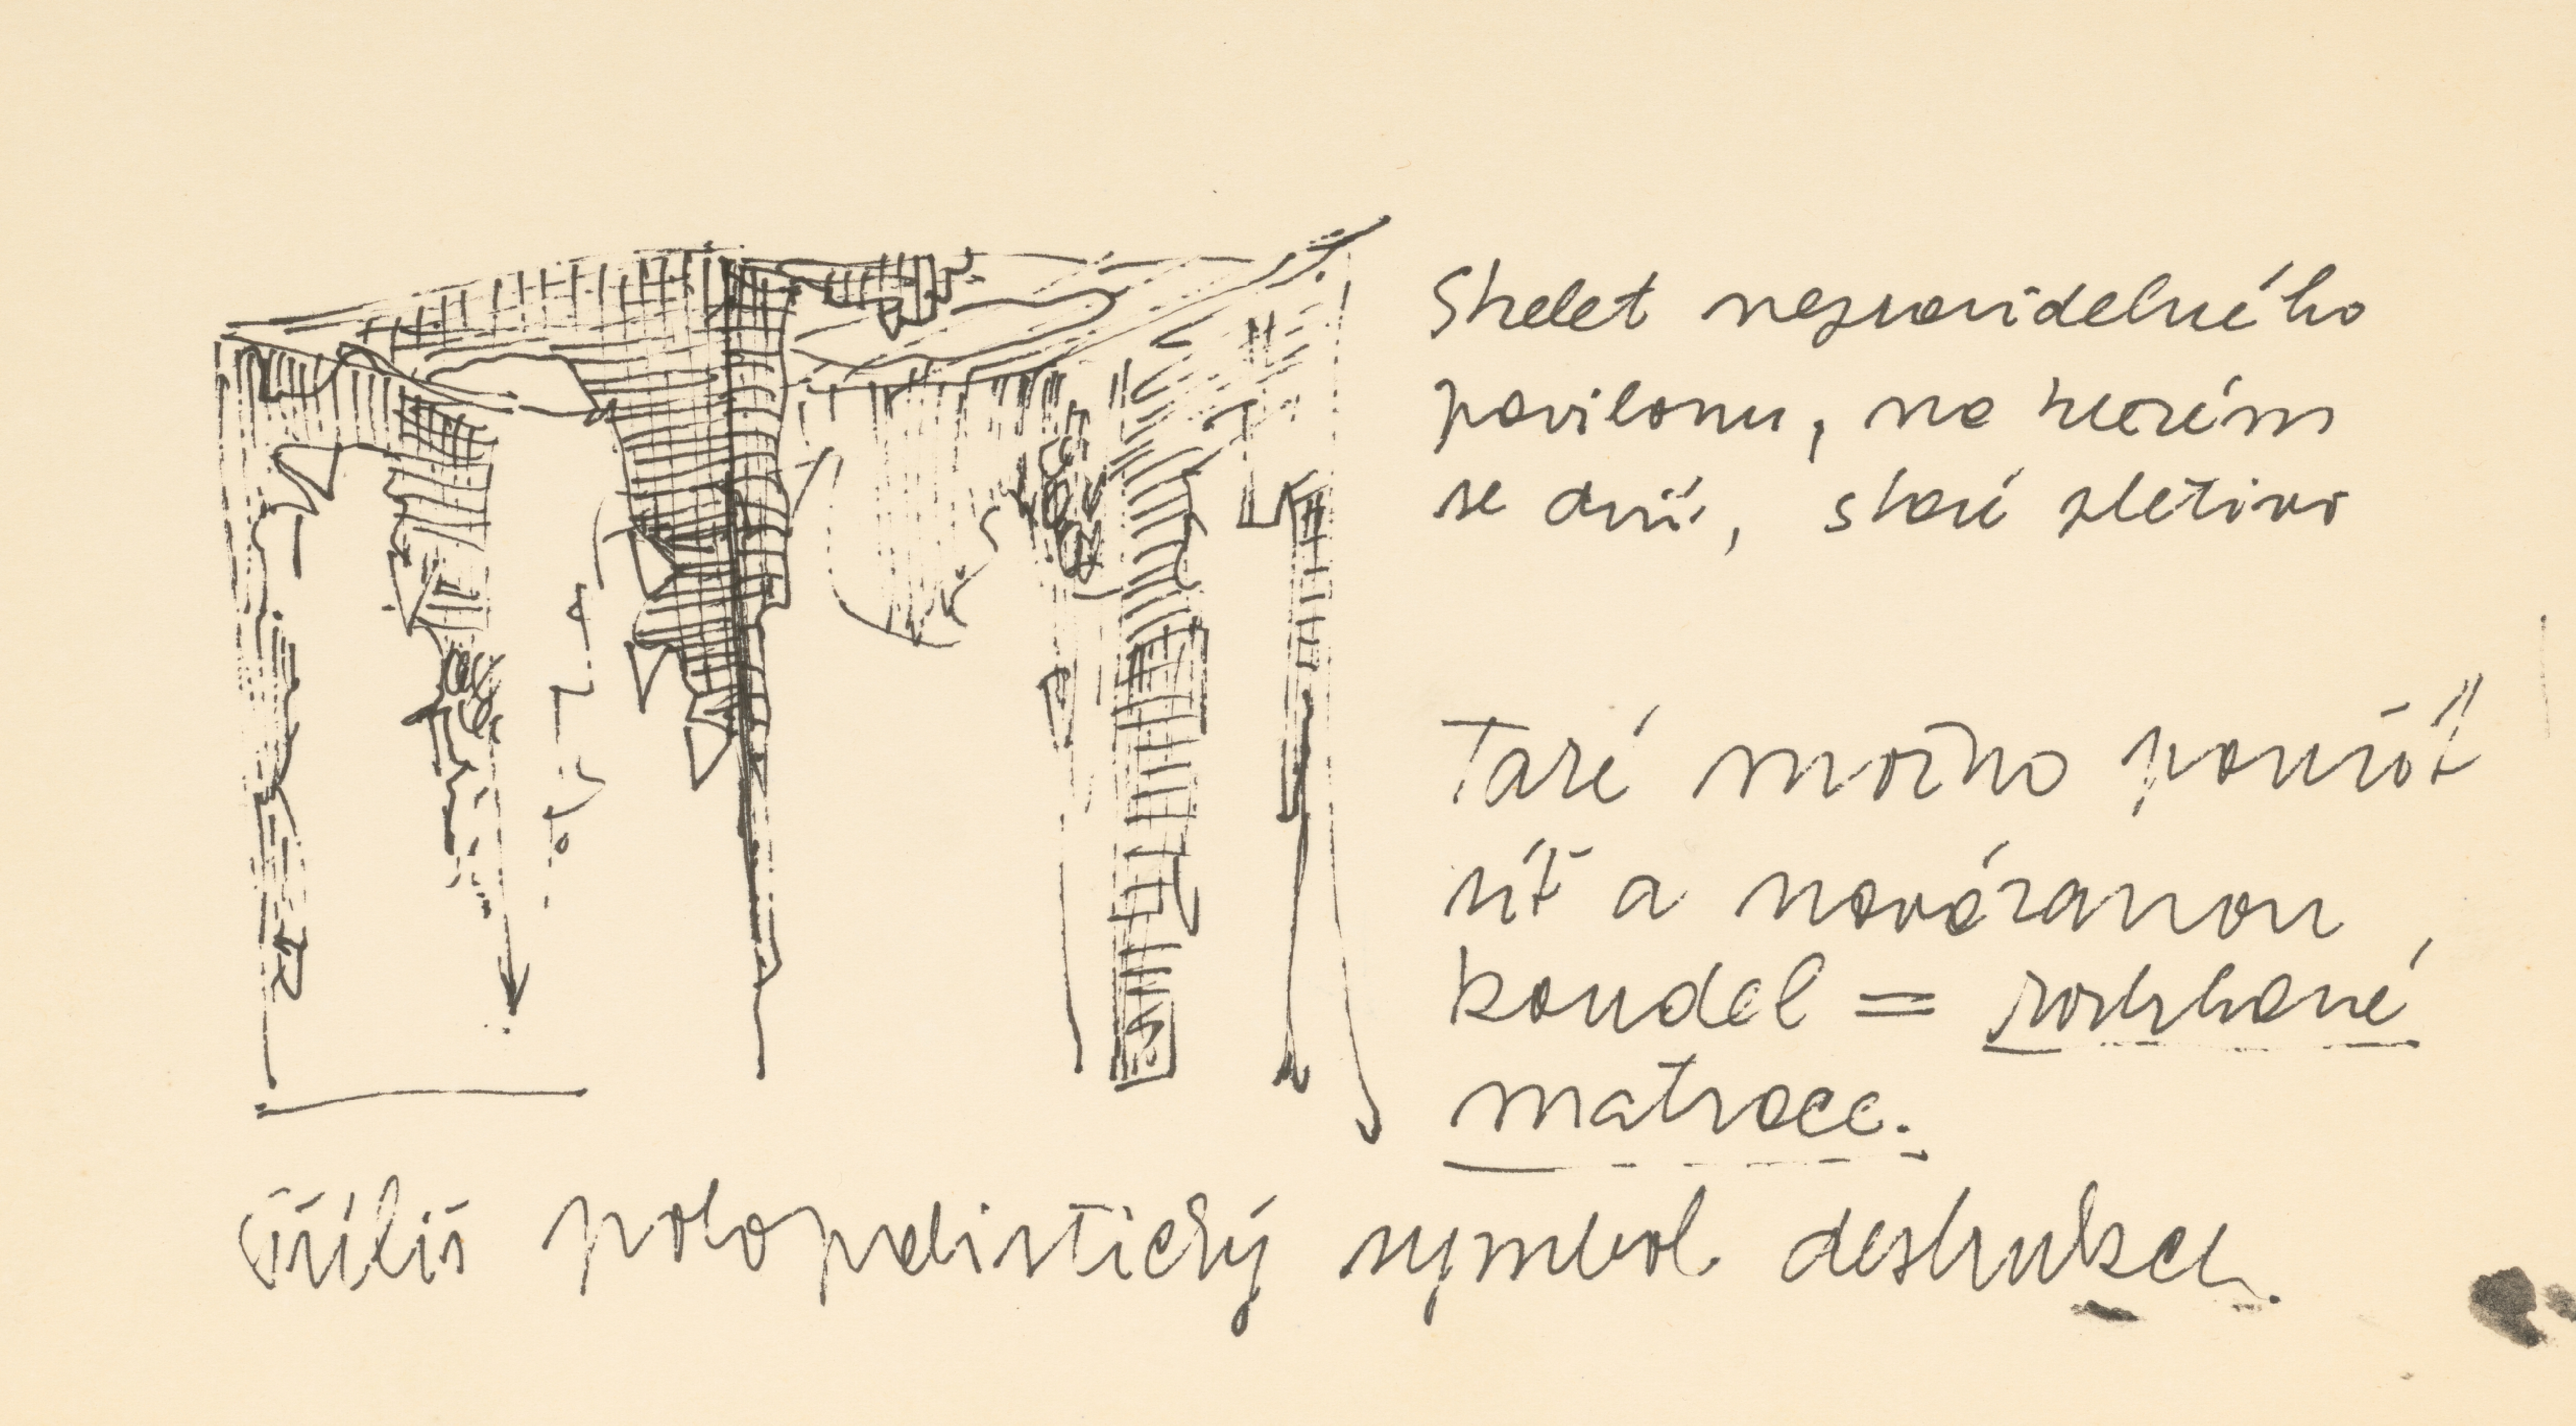 Skelet nepravidelného
pavilonu, na kterém
se drží, staré pletivo
Také možno použít
síť a navázanou
koudel = roztrhané
matrace.
Příliš polopatistický symbol destrukce.